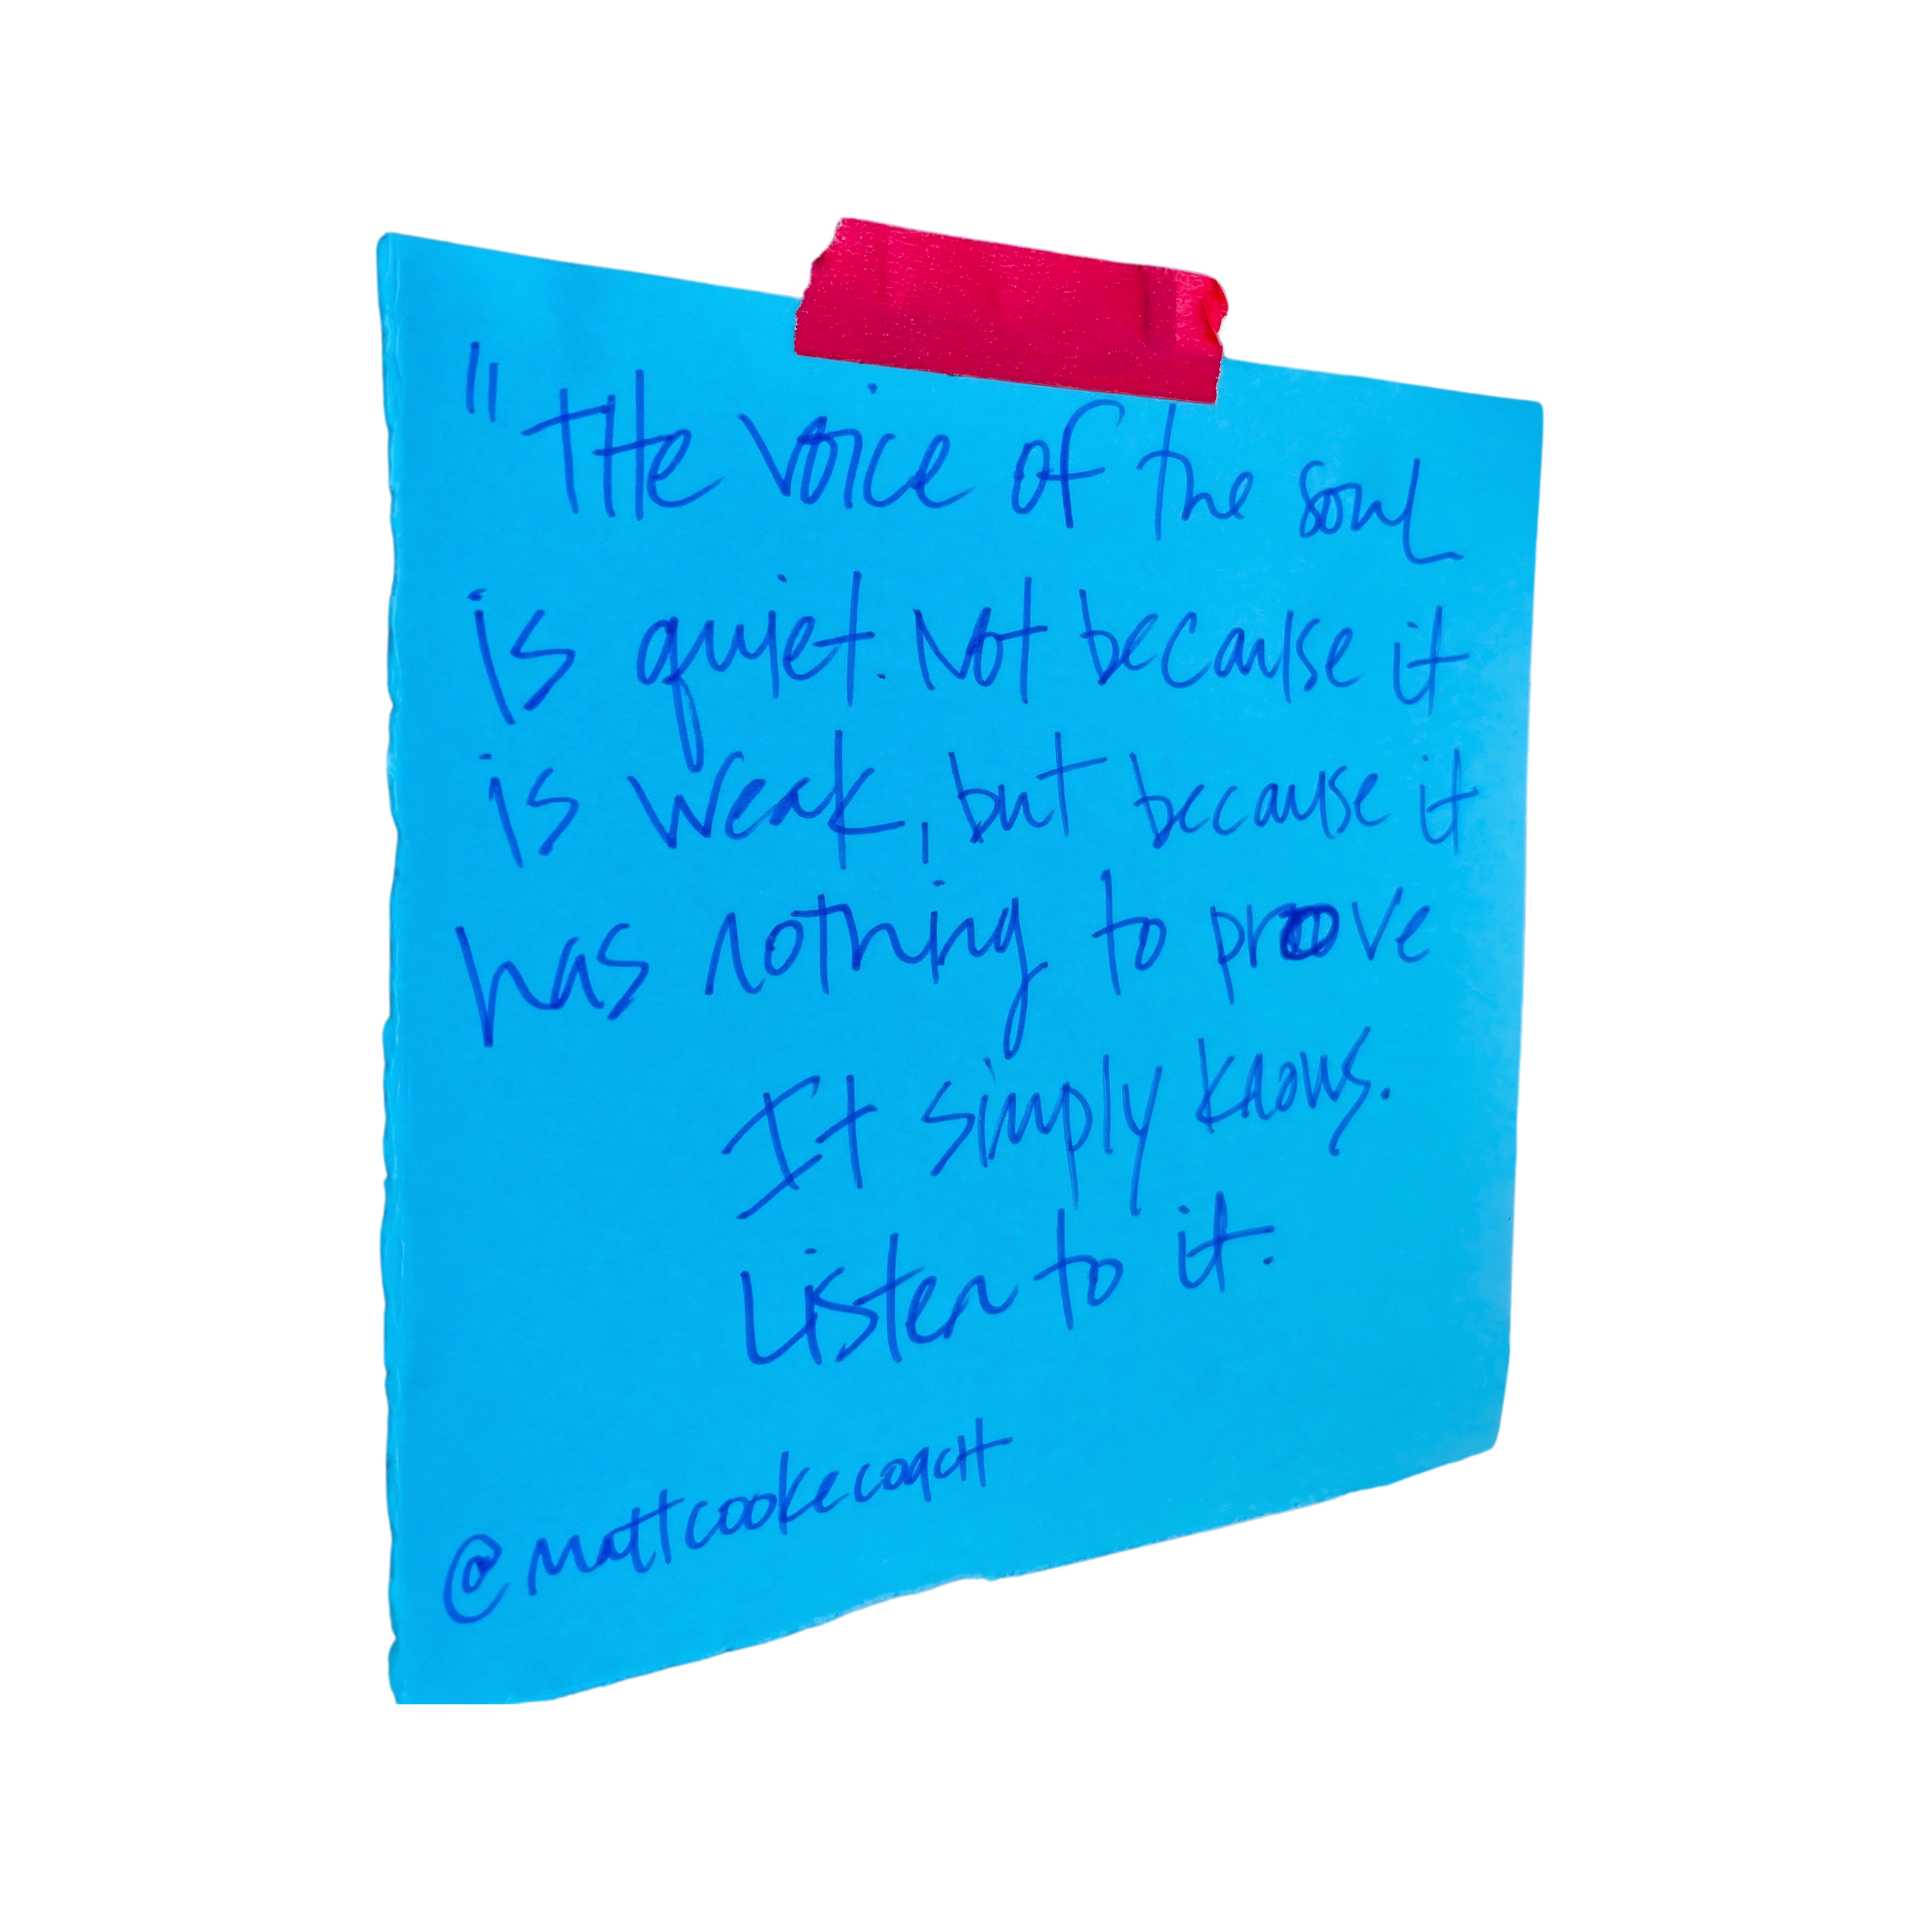 "The voice of the soul
is quiet. Not because it
is weak, but because it
has nothing to prove
It simply knows.
Listen to it.
@mattcookecoach